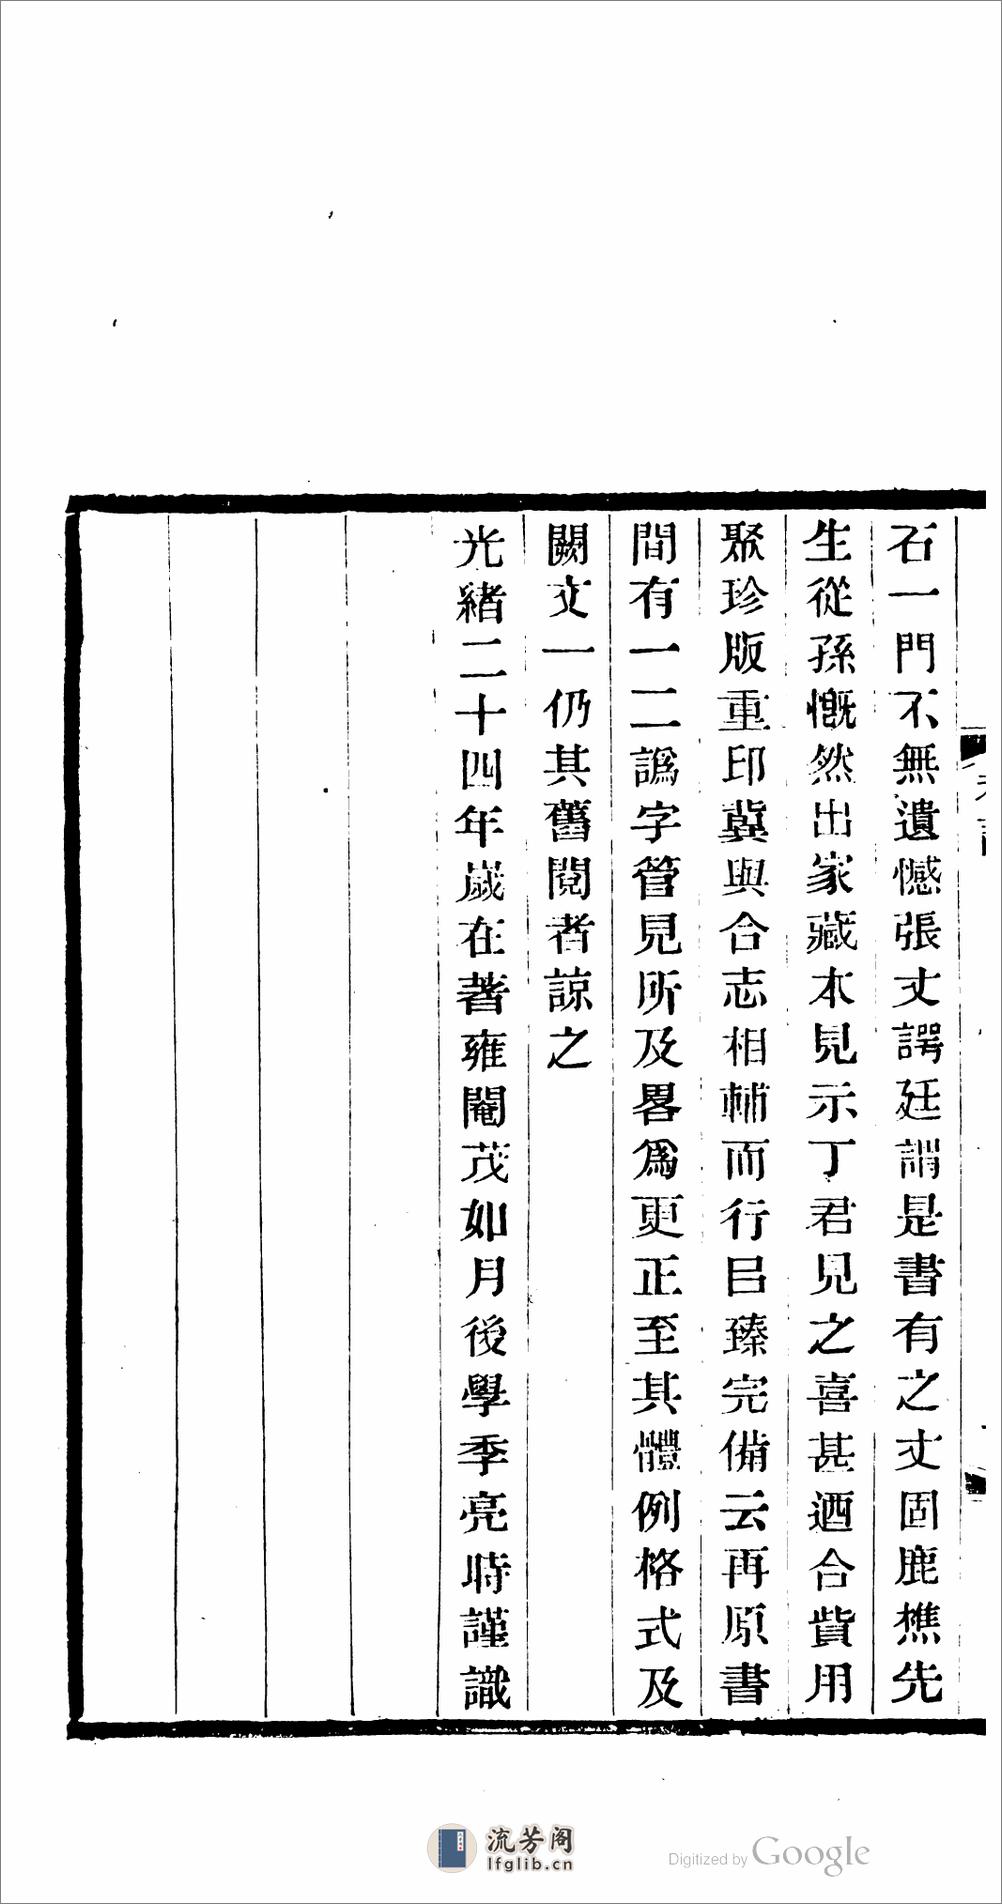 石一門不無遺憾張丈諤廷謂是書有之丈固鹿樵先
生從孫慨然出家藏本見示丁君見之喜甚迺合貲用
聚珍版重印冀與合志相輔而行㠯臻完備云再原書
間有一二譌字管見所及畧爲更正至其體例格式及
闕文一仍其舊閱者諒之
光緒二十四年歲在著雍閹茂如月後學季亮時謹識
流芳阁
lfglib.cn
Digitized by Google